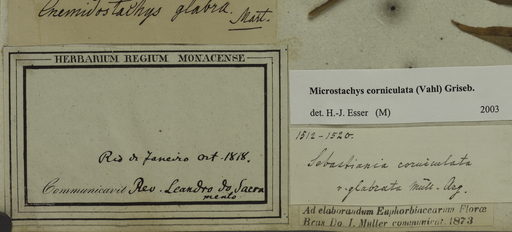 Cnemidostachys glabra.
Mart.
HERBARIUM REGIUM MONACENSE
Rio di Janeiro Oct. 1818.
Communicavit Rev. Leandro do Sacra
mento
Microstachys corniculata (Vahl) Griseb.
det. H.-J. Esser (M) 2003
1512-1520.
Sebastiania corniculata
v. glabrata Müll. Arg.
Ad elaborandum Euphorbiacearum Florae
Bras. Do. J. Müller communicat. 1873